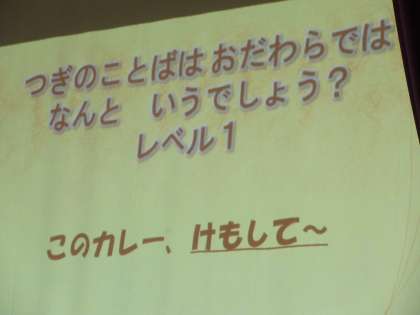 つぎのことばは おだわらでは
なんと　いうでしょう？
レベル１
このカレー、けもして～